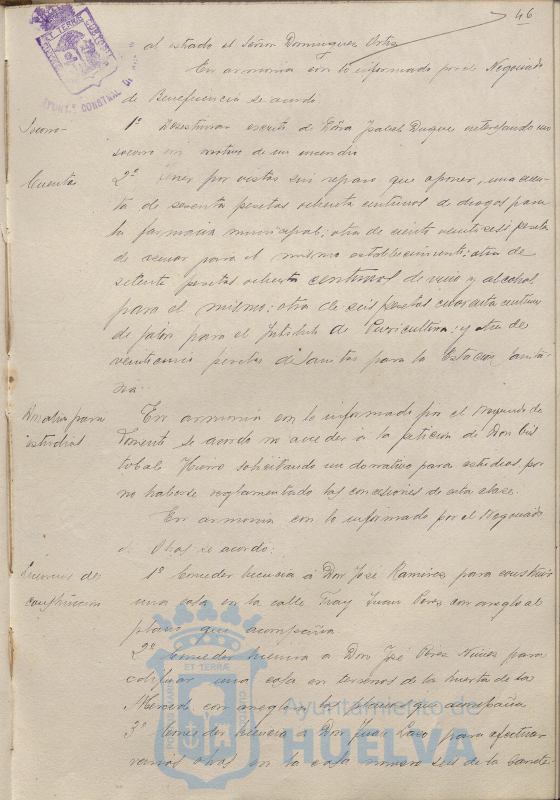 46
al estrado el Señor Dominguez Ortiz
En armonia con lo informado por el Negociado
de Beneficencia se acordó:
Socorro
1º Desestimar escrito de Doña Isabel Duque interesando un
socorro con motivo de un incendio
Cuentas
2º Aner por vistas sin reparo que oponer, una cuen-
ta de sesenta pesetas ochenta centimos de drogas para
la farmacia municipal; otra de ciento veintiseis pesetas
de para el mismo establecimiento; otra de
setenta pesetas ochenta centimos de vino y alcohol
para el mismo; otra de seis pesetas cincuenta centimos
de jabon para el Instituto de Puericultura; y otra de
veinticinco pesetas de para la Estacion Sanita-
ria.
Donativo para
estudios
En armonia con lo informado por el Negociado de
Fomento se acordó no acceder a la peticion de Don Cris
tobal Hierro solicitando un donativo para estudios por
no haberse reglamentado las concesiones de esta clase.
En armonia con lo informado por el Negociado
de Obras se acordó:
Licencias de
construccion
1º Conceder licencia á Don José Ramirez para construir
una casa en la calle Fray Juan Perez con arreglo al
plano que acompaña
2º Conceder licencia a Don José Perez Nuñez para
edificar una casa en terrenos de la huerta de la
Merced con arreglo a los planos que acompaña
3º Conceder licencia a Don Juan para efectuar
varias obras en la casa numero seis de la Carrete-
ET TERRAE
AYUNT.º CONSTNAL
ET TERRÆ
Ayuntamiento de
HUELVA